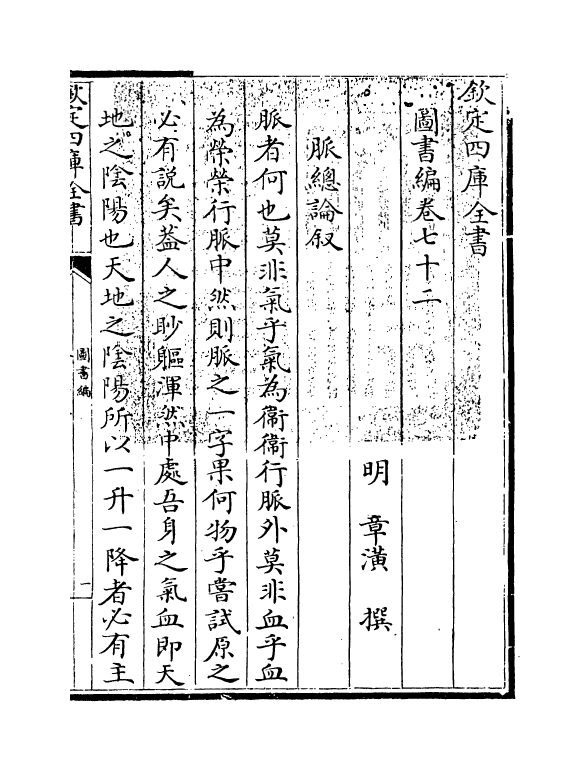 欽定四庫全書
圖書編卷七十二
明 章潢 撰
脈總論叙
脈者何也莫非氣乎氣為衞衞行脈外莫非血乎血
為榮榮行脈中然則脈之一字果何物乎嘗試原之
必有説矣葢人之眇軀渾然中處吾身之氣血即天
地之陰陽也天地之陰陽所以一升一降者必有主
欽定四庫全書
圖書編
一